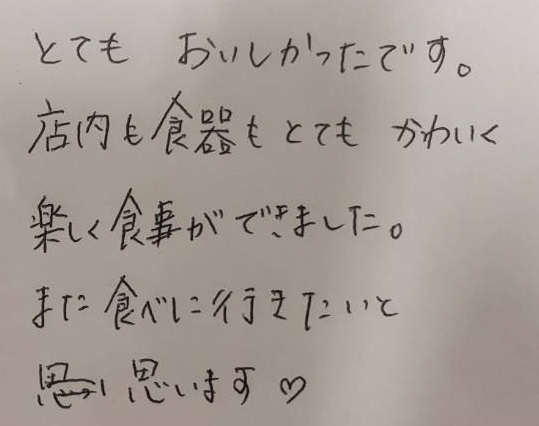 とても おいしかったです。
店内も食器もとても かわいく
楽しく食事ができました。
また食べに行きたいと
思います♡